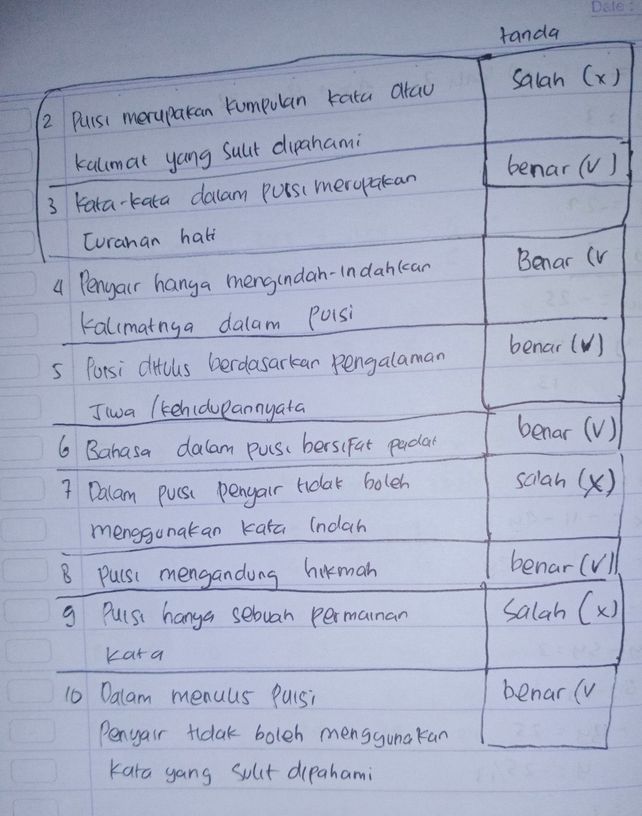 Date:
tanda
2 Puisi merupakan kumpulan kata atau salah (x)
kalimat yang sulit dipahami
3 kata-kata dalam puisi merupakan benar (v)
Curahan hati
4 Penyair hanya mengindah-indahkan Benar (v
kalimatnya dalam puisi
5 Puisi ditulis berdasarkan pengalaman benar (v)
Jiwa /kehidupannyata
6 Bahasa dalam puisi bersifat padat benar (v)
7 Dalam puisi penyair tidak boleh salah (x)
menggunakan kata indah
8 puisi mengandung hikmah benar (v)
9 Puisi hanya sebuah permainan salah (x)
kata
10 Dalam menulis puisi benar (v
Penyair tidak boleh menggunakan
kata yang sulit dipahami